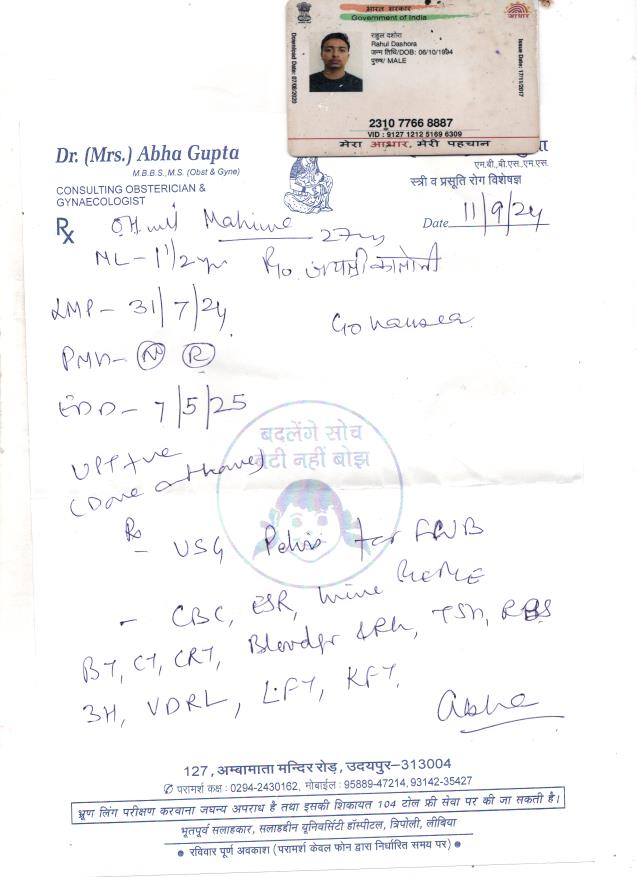 भारत सरकार
Government of India
आधार
Download Date: 07/08/2020
राहुल दशोरा
Rahul Dashora
जन्म तिथि/DOB: 06/10/1994
पुरुष/ MALE
Issue Date: 17/11/2017
2310 7766 8887
VID : 9127 1212 5169 6309
मेरा आधार, मेरी पहचान
Dr. (Mrs.) Abha Gupta
M.B.B.S.,M.S. (Obst & Gyne)
CONSULTING OBSTERICIAN &
GYNAECOLOGIST
एम.बी.बी.एस.एम.एस.
स्त्री व प्रसूति रोग विशेषज्ञ
Rx
Date 11/9/24
27
ML - 1 1/2 R/o
LMP - 31/7/24
C/o nausea
EDD - 7/5/25
UPT +ve
(Done at home)
बदलेंगे सोच
बेटी नहीं बोझ
Rx
- USG Pelvis for FWB
- CBC, ESR, Urine
BT, CT, CRT, Blood gr & Rh, TSH, RBS
3H, VDRL, LFT, KFT.
Abha
127, अम्बामाता मन्दिर रोड़, उदयपुर–313004
परामर्श कक्ष : 0294-2430162, मोबाईल : 95889-47214, 93142-35427
भ्रूण लिंग परीक्षण करवाना जघन्य अपराध है तथा इसकी शिकायत 104 टोल फ्री सेवा पर की जा सकती है।
भूतपूर्व सलाहकार, सलाहद्दीन यूनिवर्सिटी हॉस्पीटल, त्रिपोली, लीबिया
• रविवार पूर्ण अवकाश (परामर्श केवल फोन द्वारा निर्धारित समय पर) •